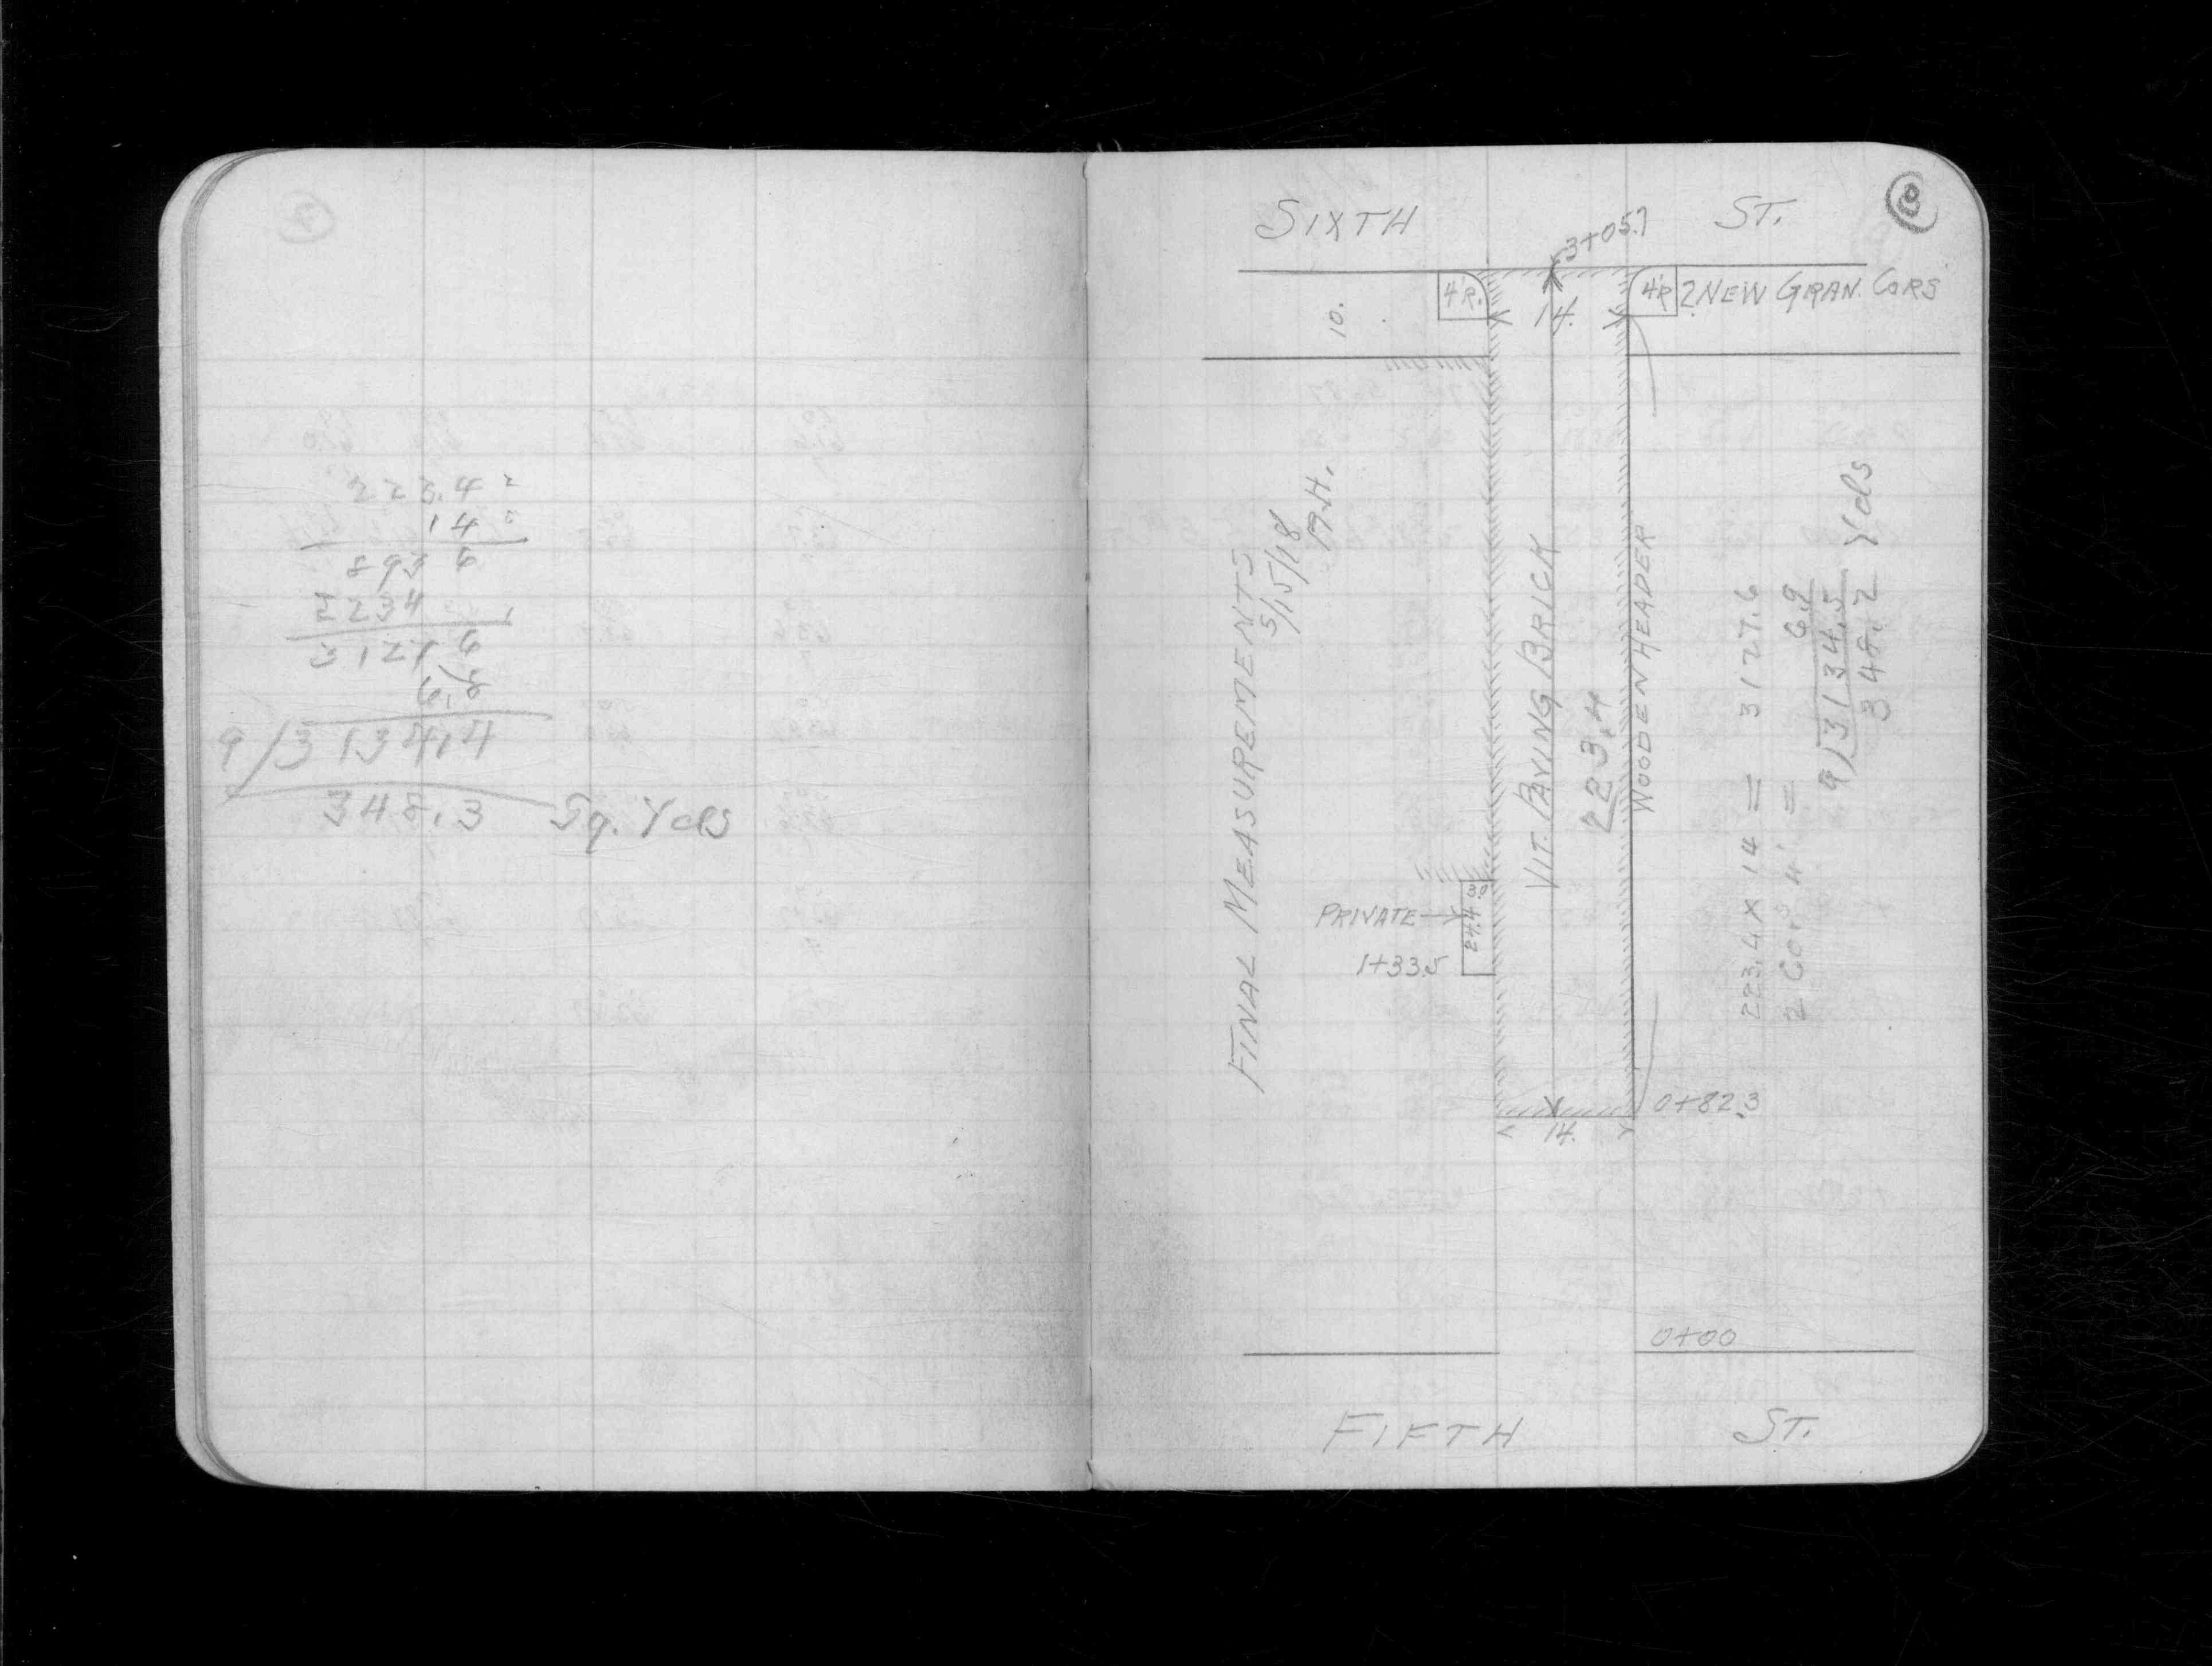 223.4
14
893 6
2234
3127 6
6.8
9/3134.4
348.3 Sq. Yds
8
SIXTH ST.
3+05.7
4'R.
14.
4'R
2 NEW GRAN. CORS
10.
FINAL MEASUREMENTS
5/15/18
VIT. PAVING BRICK
223.4
WOODEN HEADER
PRIVATE
24.4
3.0
1+33.5
223.4 x 14 = 3127.6
2 Cor's 4' = 6.9
9/3134.5
348.2 Yds
0+82.3
14.
0+00
FIFTH ST.